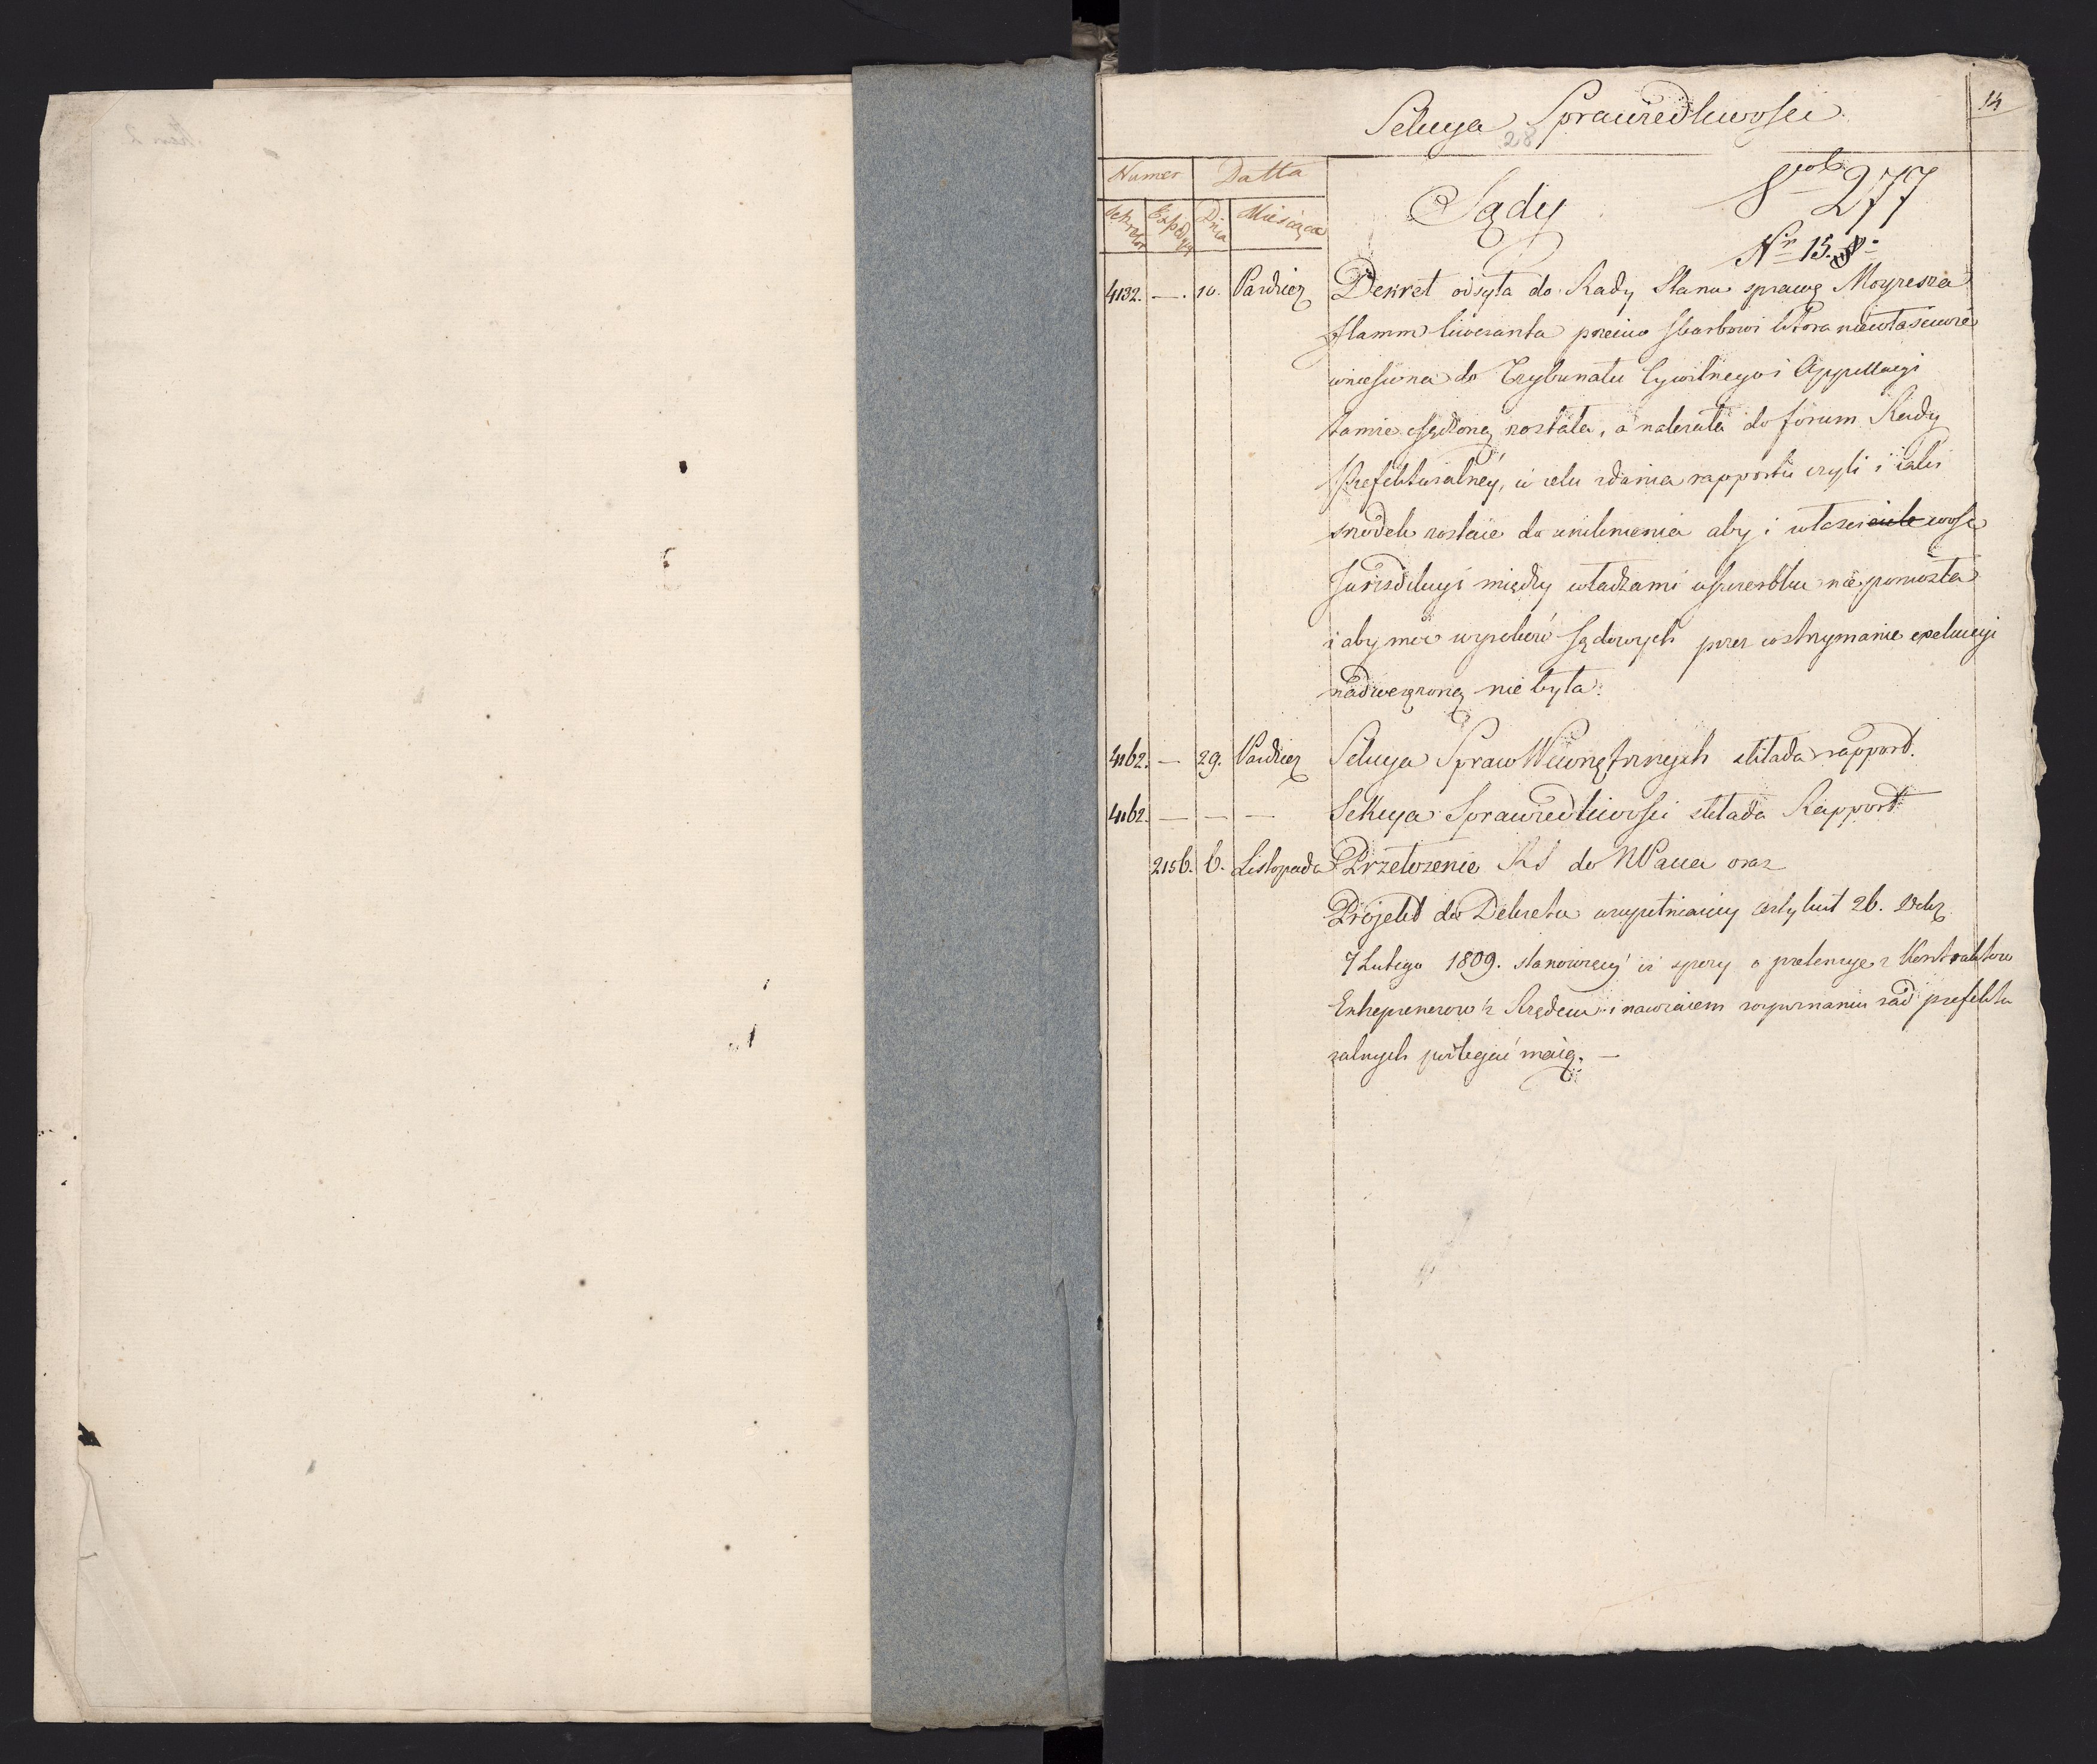 14
Sekcya Sprawiedliwosci
28
Numer Datta
Sekretar Expedyc Dnia Miesiąca
Sądy
vol. 277
Nr 15.
4132. — . 10. Paździer Dekret odsyła do Rady Stanu sprawę Moyżesza
Flamm liweranta przeciw skarbowi która niewłasciwie
wniesiona do Trybunału Cywilnego i Appellacyi
tamże osądzoną została, a należała do forum Rady
Prefekturalney, w celu zdania rapportu czyli i iaki
srzodek zostaie do uniknienia aby i własciwosc
Jurisdikcyi między władzami uszczerbku nie poniosła
i aby moc wyroków sądowych przez wstrzymanie exekucyi
nadwerężoną nie była.
4162. — 29. Paździer Sekcya Spraw Wewnętrznych składa rapport.
4162. — — — Sekcya Sprawiedliwosci składa Rapport
2156. 6. Listopada Przełożenie RS do NPana oraz
Projekt do Dekretu uzupełniaiący artykuł 26. Dekr
7 Lutego 1809. stanowiący iż spory o pretensye z Kontraktow
Entreprenerow z Rządem i nawzaiem rozpoznaniu rad prefektu
ralnych podlegać maią. —